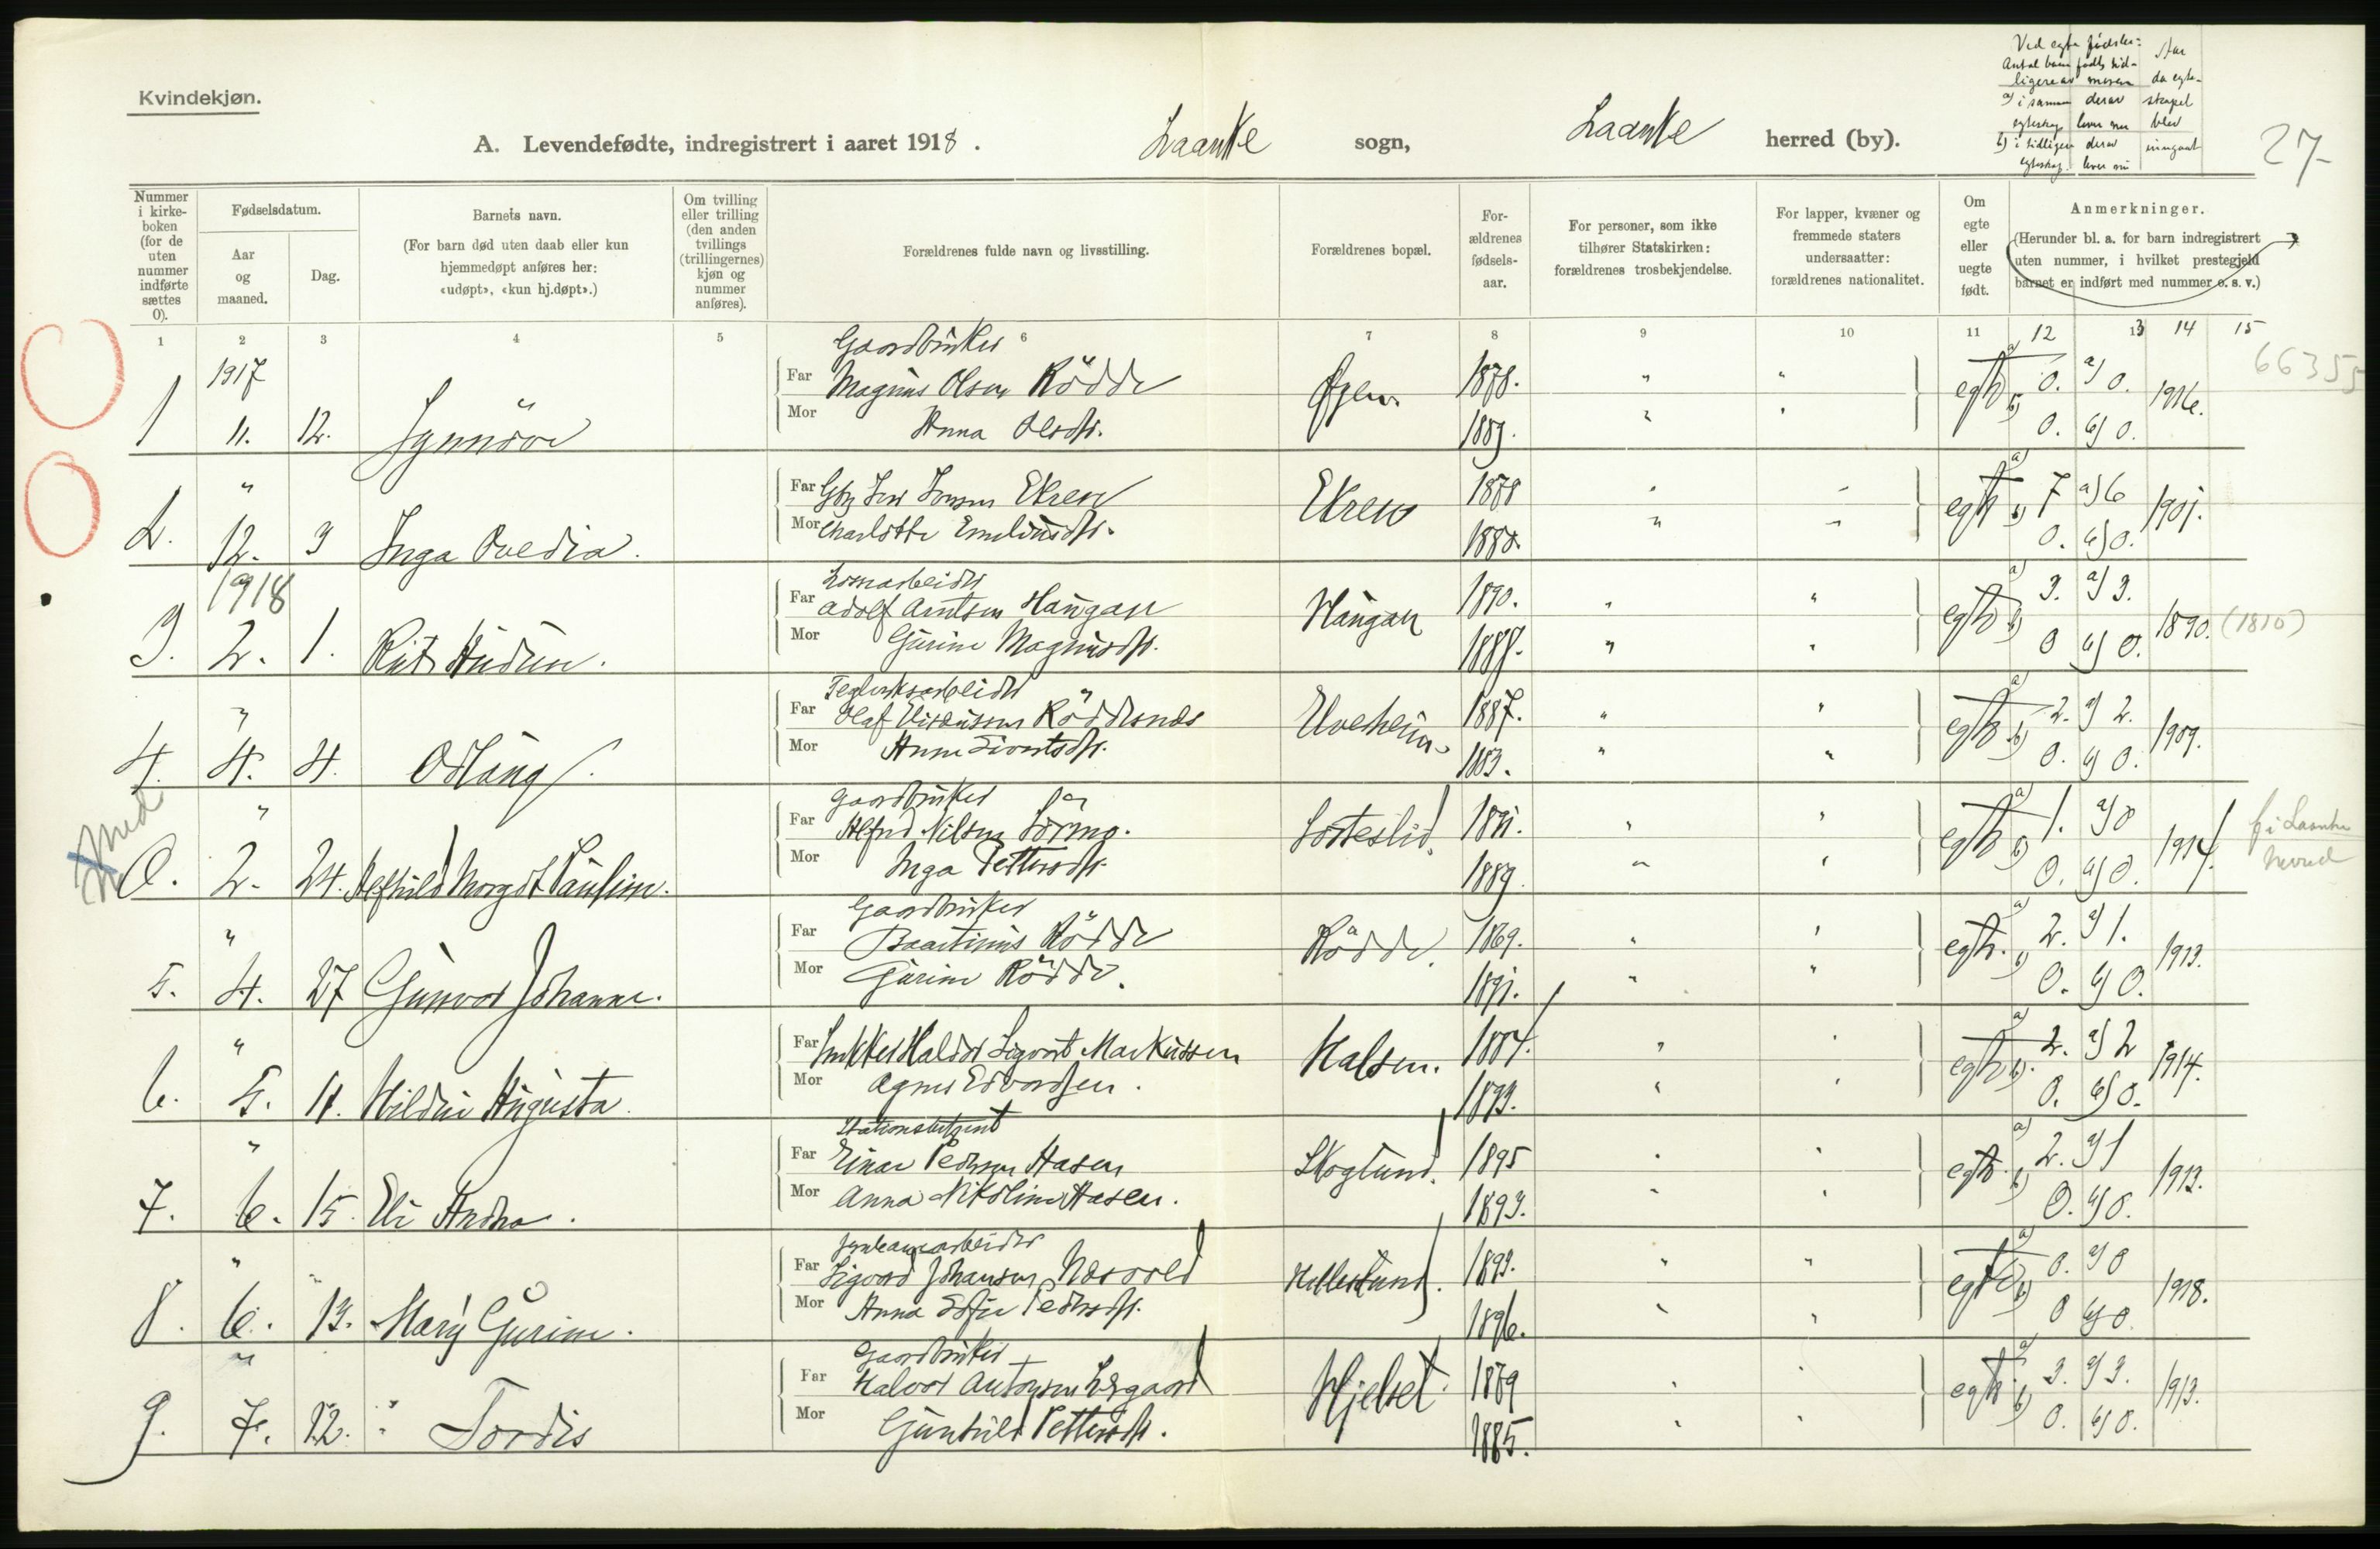 Kvindekjøn.
A. Levendefødte, indregistrert i aaret 1918. Laanke sogn, Laanke herred (by).
Ved egte fødsler:
Antal barn født tid-
ligere av moren
a) i samme egteskap
derav lever nu
b) i tidligere egteskap.
derav lever nu
Aar da egte-
skapet blev
inngaat
27
Nummer i kirke-boken (for de uten nummer indførte sættes 0).
Fødselsdatum.
Aar og maaned.
Dag.
Barnets navn.
(For barn død uten daab eller kun hjemmedøpt anføres her: «udøpt», «kun hj.døpt».)
Om tvilling eller trilling (den anden tvillings (trillingernes) kjøn og nummer anføres).
Forældrenes fulde navn og livsstilling.
Forældrenes bopæl.
For-ældrenes fødsels-aar.
For personer, som ikke tilhører Statskirken: forældrenes trosbekjendelse.
For lapper, kvæner og fremmede staters undersaatter: forældrenes nationalitet.
Om egte eller uegte født.
Anmerkninger.
(Herunder bl. a. for barn indregistrert uten nummer, i hvilket prestegjeld barnet er indført med nummer o. s. v.)
1 2 3 4 5 6 7 8 9 10 11 12 13 14 15
66355
Gaardbruker
1 1917 11. 12. Synnöve Far Magnus Olsen Rödde 1878. " " egte a) 0. a) 0. 1916.
Mor Anna Olsdtr. 1889. " " b) 0. b) 0.
2. " 12. 3 Inga Ovedia. Far Ekren Ekren 1878 " " egte a) 7 a) 6 1901.
Mor Charlotte Emiliusdtr. 1880. " " b) 0. b) 0.
3. 1918 2. 1. Far Adolf Arntsen Haugan Haugan 1890. " " egte a) 3. a) 3. 1890. (1810)
Mor Gurine Magnusdtr. " " b) 0 b) 0.
Teglverksarbeider
4. " 4. 4. Odlaug. Far Olaf Röddesnes Elveheim. 1887. " " egte a) 2. a) 2. 1909.
Mor Anne Sivertsdtr. 1883. " " b) 0. b) 0.
Gaardbruker
med
0. " 2. 24. Alfhild Margot Pauline. Far Alfred Nilsen Sörmo. Sorteslid. 1891. " " egte a) 1. a) 0 1914. f i Laanke herred
Mor Inga Pettersdtr. 1889. " " b) 0. b) 0.
Gaardbruker
5. " 4. 27 Gunvor Johanne. Far Baartinus Rödde Rödde. 1869. " " egte. a) 2. a) 1. 1913.
Mor Gurine Rödde. 1891. " " b) 0. b) 0.
6. " 5. 11. Hildur Augusta. Far Snekker Haldor Sigvart Markussen Halsen. 1884. " " egte a) 2. a) 2 1914.
Mor Agnes Edvardsen. 1893. " " b) 0. b) 0.
7. " 6. 15. Eli Andrea. Far Einar Pedersen Hasen Skoglund. 1895 " " egte. a) 2. a) 1 1913.
Mor Anna Nikoline Hasen. 1893. " " b) 0. b) 0.
Jernbanearbeider
8. " 6. " 13. Mary Gurine. Far Sigvard Johansen Næsvold 1893. " " egte a) 0. a) 0 1918.
Mor Anna Sofie Pedersdtr. 1896. " " b) 0 b) 0.
Gaardbruker
9. " 7. 12. " Tordis Far Halvor Antonsen Hjelset. 1879 " " egte a) 3. a) 3. 1913.
Mor Gunhild Pettersdtr. 1885. " " b) 0. b) 0.